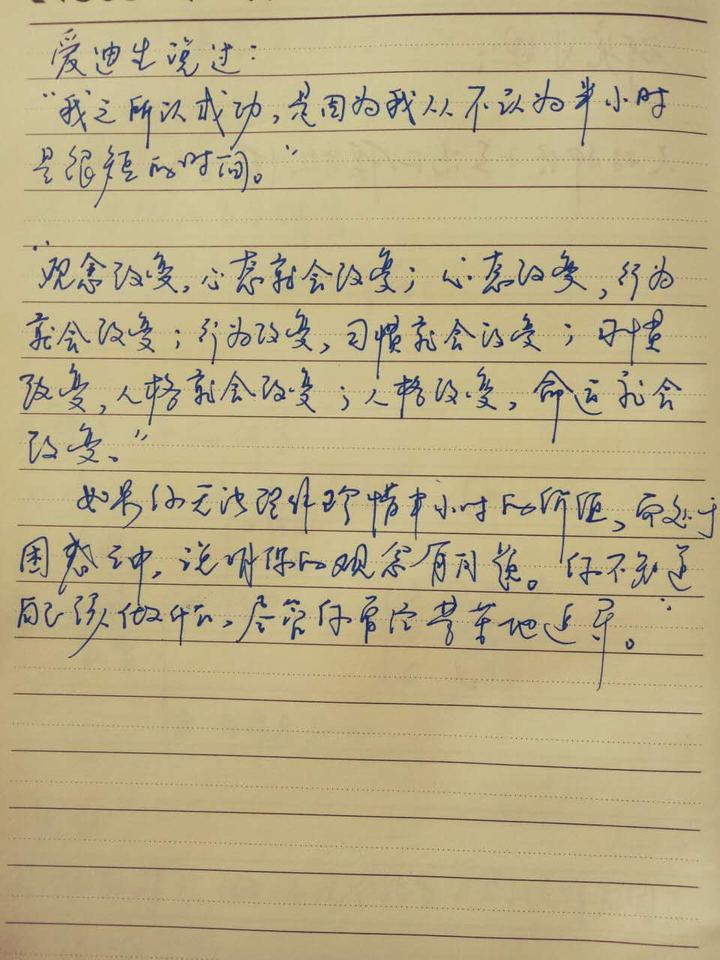 爱迪生说过：
"我之所以成功，是因为我从不认为半小时
是很短的时间。"
"观念改变，心态就会改变；心态改变，行为
就会改变；行为改变，习惯就会改变；习惯
改变，人格就会改变；人格改变，命运就会
改变。"
如果你无法理解珍惜半小时的价值，而处于
困惑之中，说明你的观念有问题。你不知道
自己该做什么，尽管你看似勤劳地追寻。